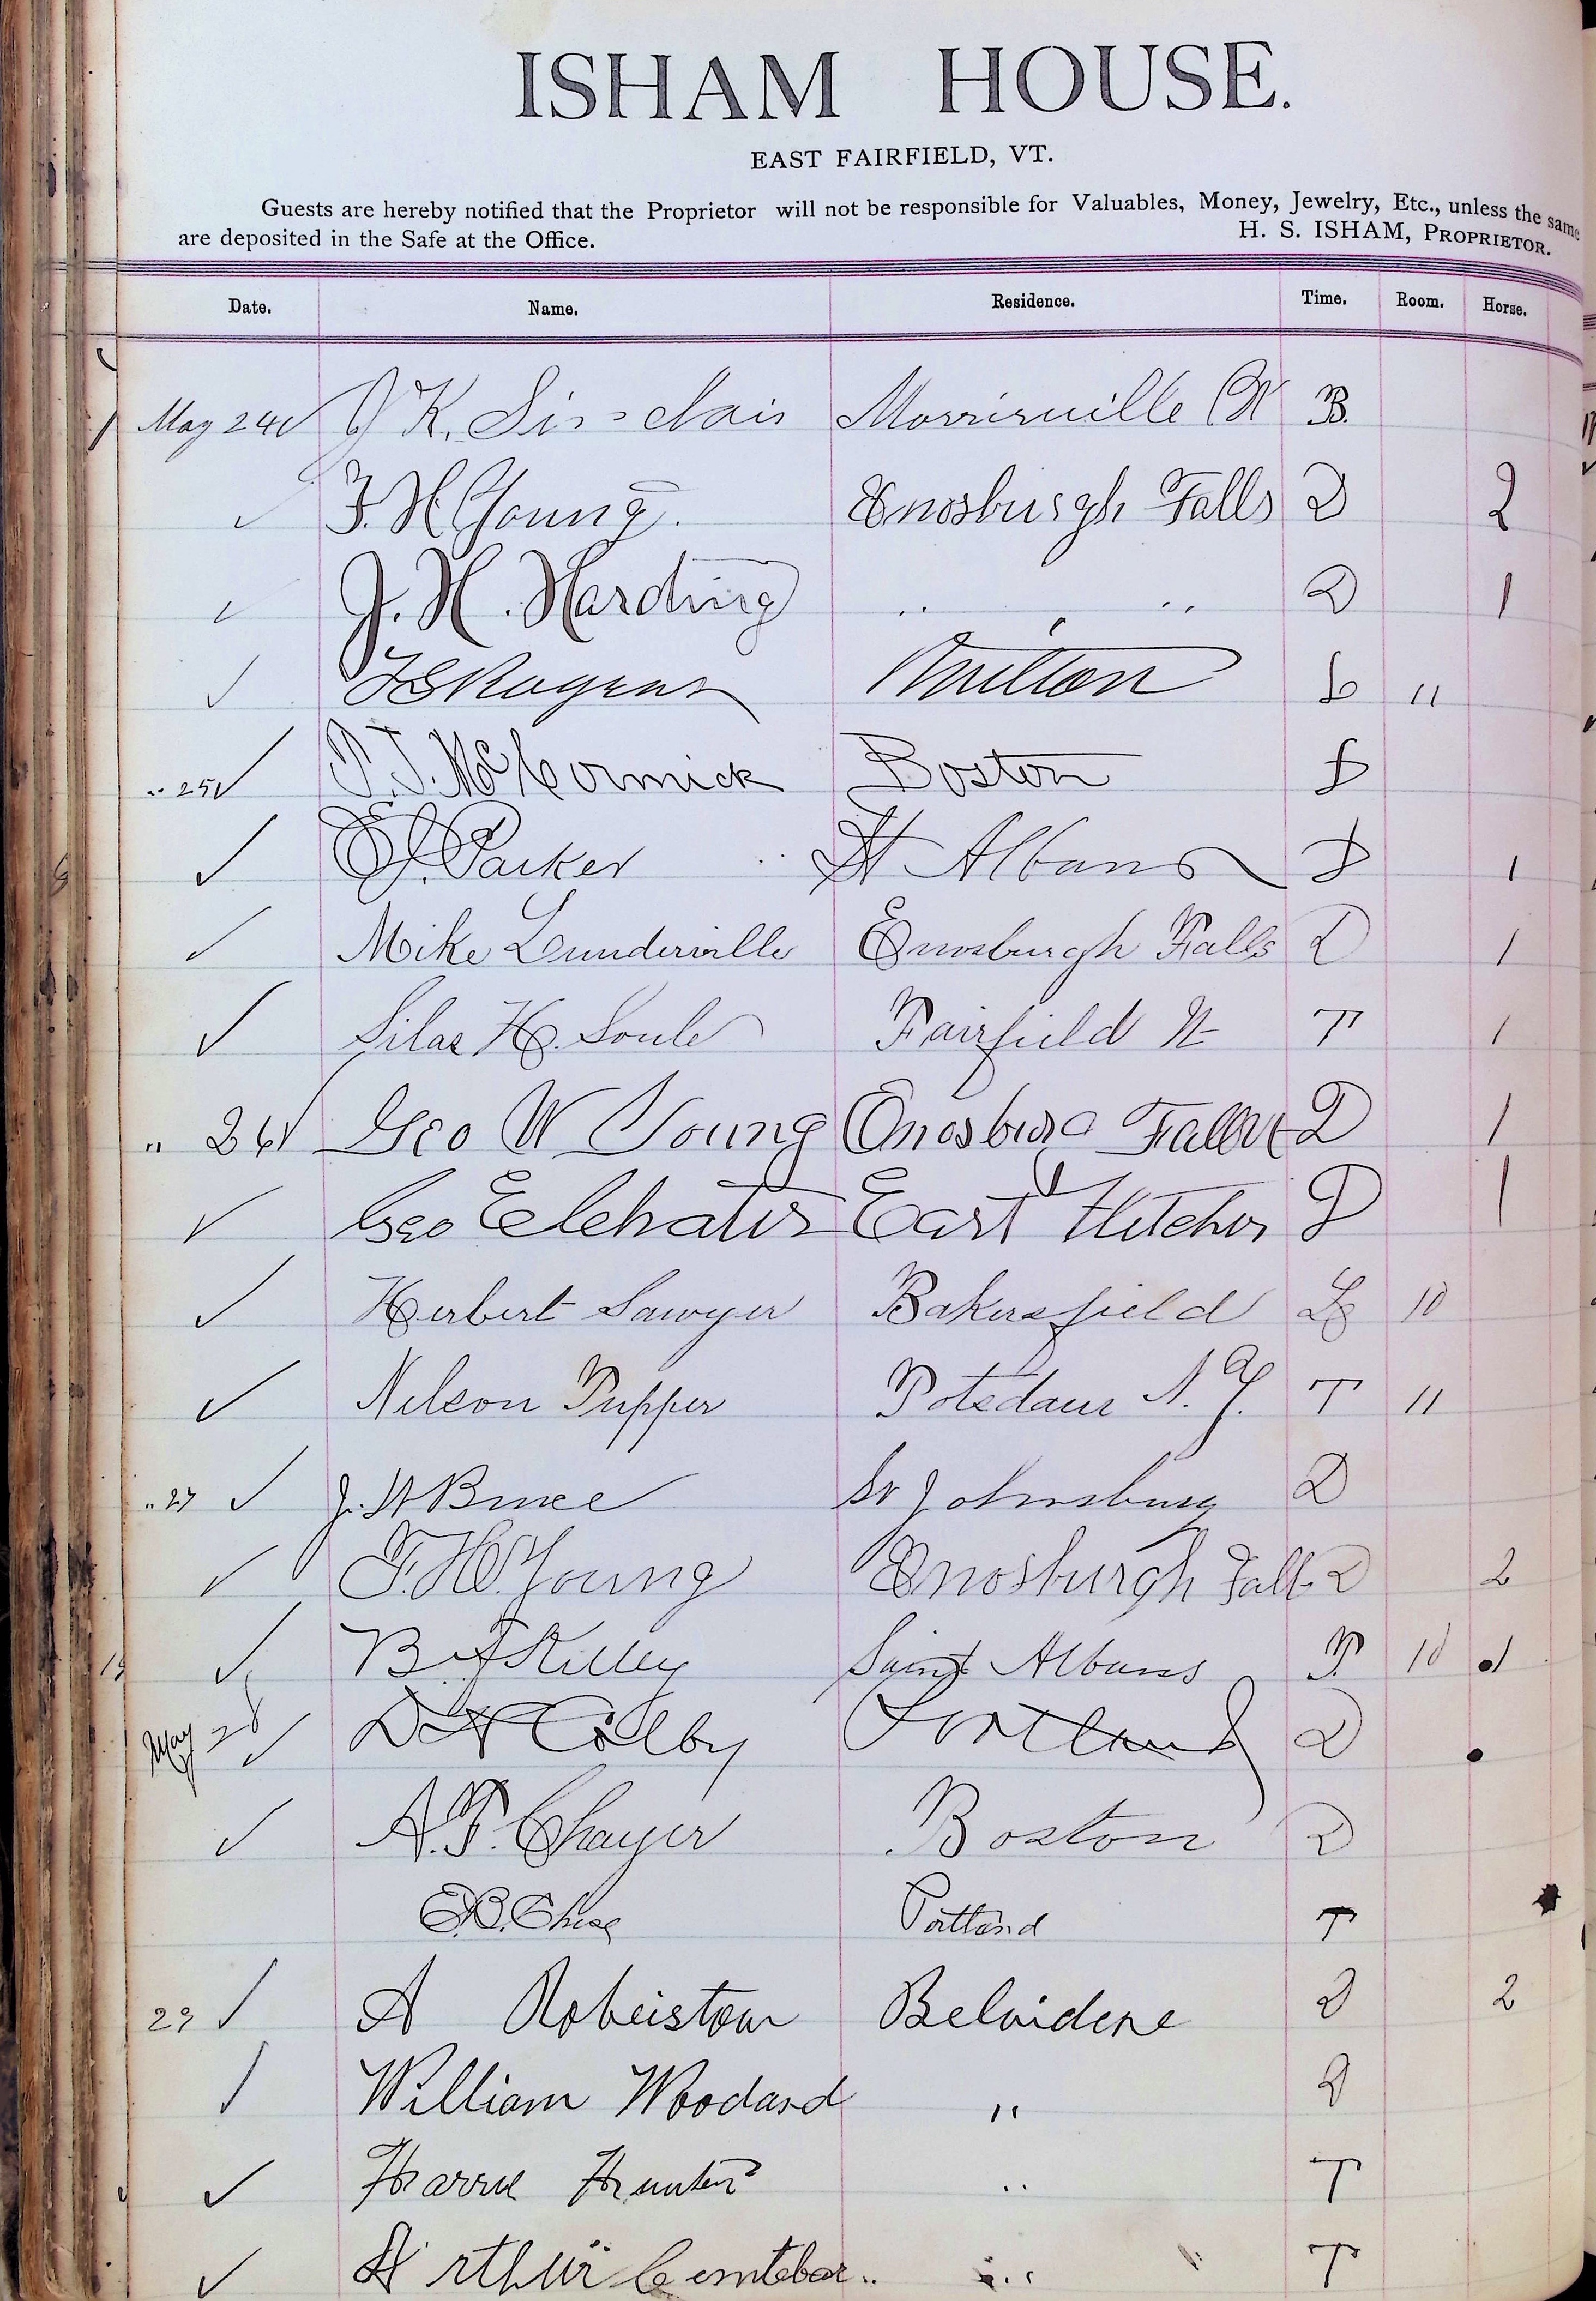 ISHAM HOUSE.
EAST FAIRFIELD, VT.
Guests are hereby notified that the Proprietor will not be responsible for Valuables, Money, Jewelry, Etc., unless the same
are deposited in the Safe at the Office. H. S. ISHAM, PROPRIETOR.
Date. Name. Residence. Time. Room. Horse.
May 24 J K. Sinclair Morrisville B.
F. H Young. Enosburgh Falls D 2
J. H. Harding .. .. D 1
Rogers Milton L 11
.. 25 P. J. McCormick Boston D
E J. Parker St Albans D 1
Mike Lunderville Enosburgh Falls D 1
Silas H. Soule Fairfield Vt T 1
" 26 Geo W Young Enosburg Falls Vt D 1
Geo East Fletcher D 1
Herbert Sawyer Bakersfield 10
Nelson Tupper Potsdam N. Y. T 11
.. 27 J. W Bruce St Johnsbury D
F. H. Young Enosburgh Falls D 2
B F Kelley Saint Albans T. 10 1
May 28 Colby Portland D
A. F. Thayer Boston D
E. B. Chase Portland T
29 A Robeistow Belvidere D 2
William Woodard " D
Harrie Hunter .. T
Arthur .. T